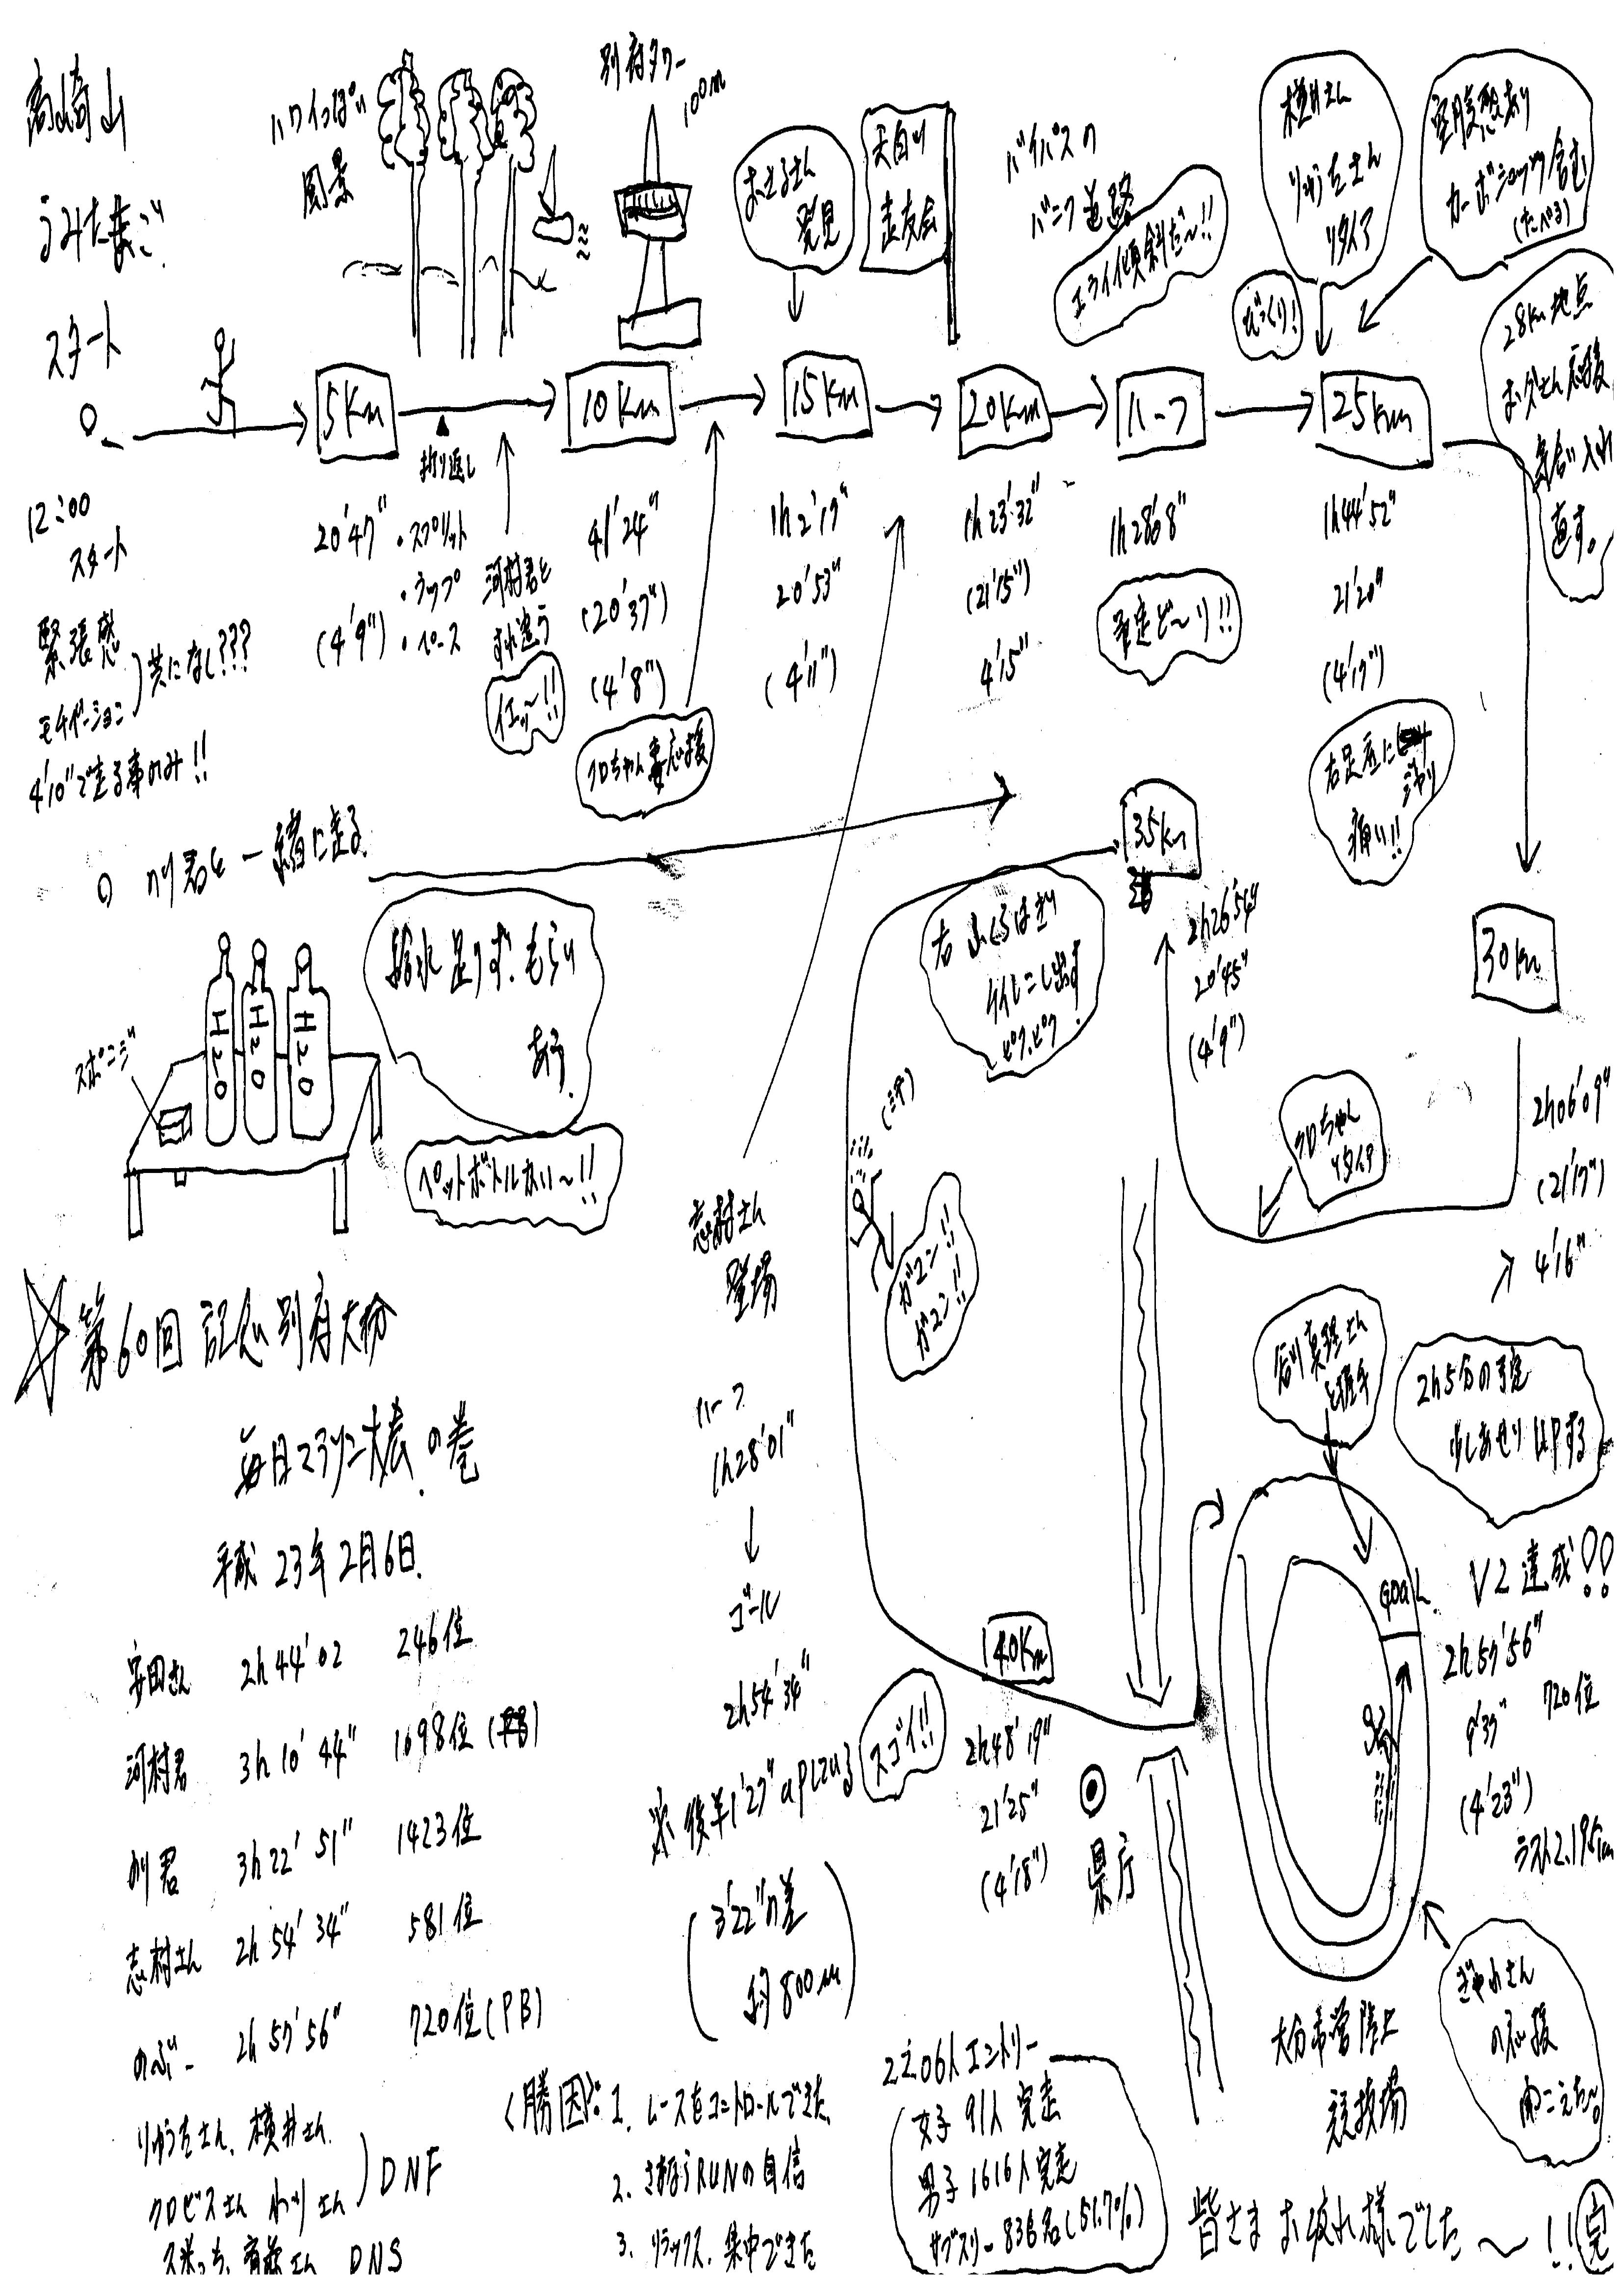 高崎山
うみたまご
スタート
ハワイっぽい
風景
別府タワー
100m
おさるさん
発見
天白川
走友会
バイパスの
バンク道路
エライ傾斜だ〜!!
びっくり!
横井さん
りゅうさん
リタイア
空腹感あり
カーボショッツ含む
(たべる)
28km地点
お父さん応援
気合い入れ
直す。
5Km
10Km
15Km
20Km
ハーフ
25Km
折り返し
12:00
スタート
緊張感
モチベーション
共になし???
4'10"で走る事のみ!!
20'47"
(4'9")
・スプリット
・ラップ
・ペース
河村君と
すれ違う
イエ〜!!
41'24"
(20'37")
(4'8")
クロちゃん応援
1h2'17"
20'53"
(4'11")
1h23'32"
(21'15")
4'15"
1h28'08"
予定ど〜り!!
1h44'52"
21'20"
(4'17")
右足底に
ジャリ
痛い!!
一緒に走る
給水足りず。もらい
あう
ペットボトルない〜!!
スポンジ
H2O
H2O
H2O
35Km
2h26'54"
20'45"
(4'9")
右ふくらはぎ
ケイレンし出す
ピク、ピク!
30Km
2h06'09"
(21'17")
4'16"
クロちゃん
リタイア
ガコン!!
ガコン!!
志村さん
登場
ハーフ
1h28'01"
ゴール
2h54'34"
※後半1'27"upしている
スゴイ!!
(3'22"の差
約800m)
第60回記念別府大分
毎日マラソン大会の巻
平成23年2月6日
安田さん 2h44'02 246位
河村君 3h10'44" 1698位 (PB)
3h22'51" 1423位
志村さん 2h54'34" 581位
のぶー 2h57'56" 720位(PB)
りゅうさん、横井さん
クロビスさん
DNF
DNS
2h5分の予定
少しあせりUPする
と握手
GOAL
V2達成!!
2h57'56"
720位
9'37"
(4'23")
ラスト2.195km
40Km
2h48'19"
21'25"
(4'18")
県庁
大分市営陸上
競技場
ぎゃれさん
の応援
聞こえた〜。
<勝因>:1. レースをコントロールできた
2. さねならRUNの自信
3. リラックス、集中できた
2206人エントリー
女子 91人 完走
男子 1616人 完走
サブスリー 836名(51.7%)
皆さまお疲れ様でした〜!!完